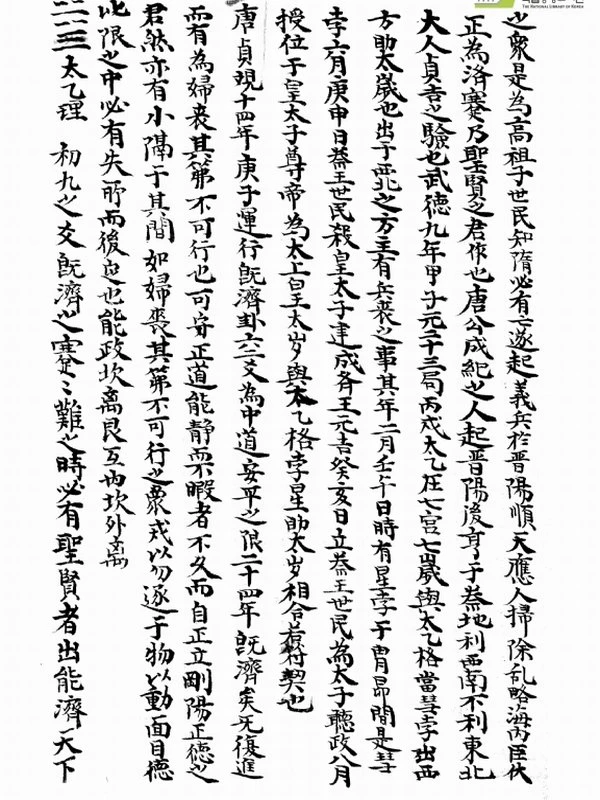 之衆是為高祖子世民知隋必有亡遂起義兵於晉陽順天應人掃除乱略海內臣伏
正為洛蹇乃聖賢之君作也唐公成紀之人起晉陽後亨于叅地利西南不利東北
大人貞吉之驗也武德九年甲子元二十三局丙戌太乙在七宮七歲與太乙格當彗孛出西
方助太歲也出于西北之方主有兵喪之事其年二月壬午日時有星孛于胃昴間是彗
孛六月庚申日叅王世民殺皇太子建成齊王元吉癸亥日立叅王世民為太子聽政八月
授位于皇太子尊帝為太上皇太岁與太乙格孛星助太岁相合若符契也
唐貞現十四年庚子運行旣濟卦六二爻為中道安平之限二十四年旣濟矣旡復進
而有為婦喪其茀不可行也可守正道能静而不暇者不久而自正立剛陽正德之
君然亦有小隔于其間如婦喪其茀不可行之象戒以勿逐于物以動面目德
此限之中必有失所而後良也能政坎离艮互內坎外离
二二三太乙理 初九之爻旣濟之蹇〻難之時必有聖賢者出能濟天下
THE NATIONAL LIBRARY OF KOREA